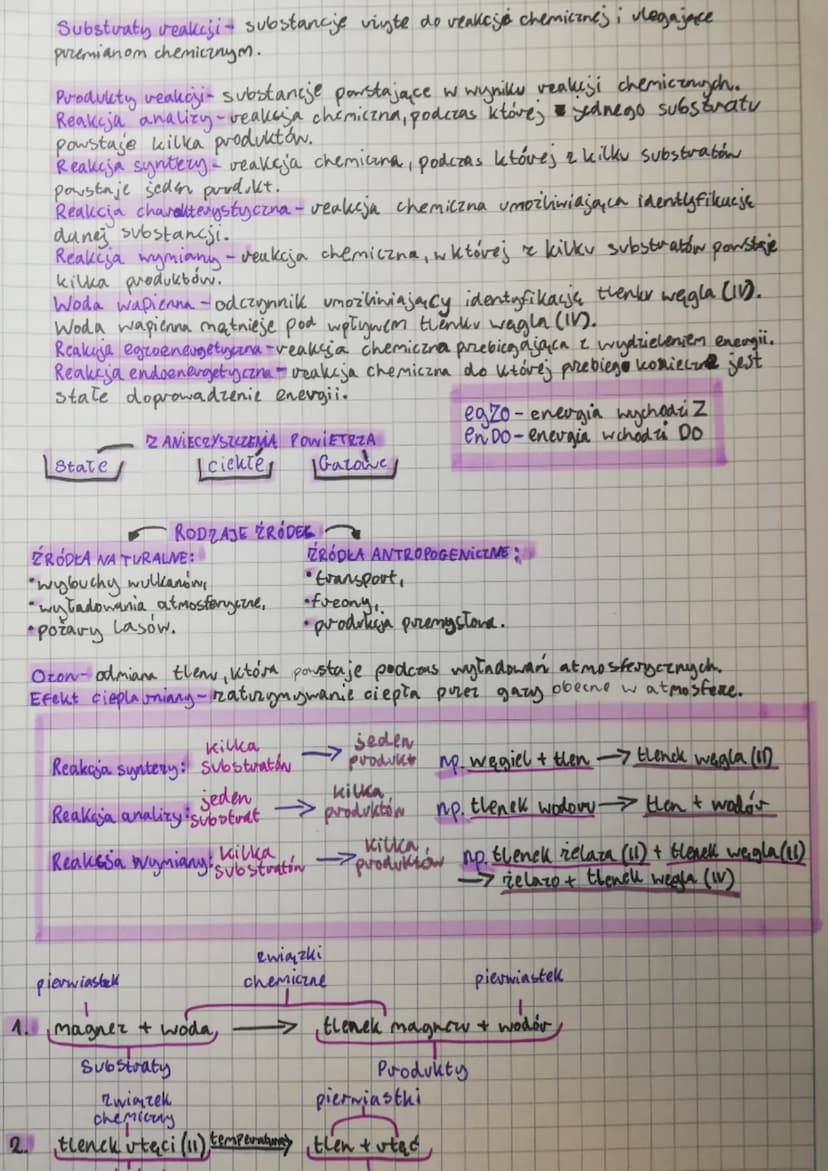 Substraty reakcji - substancje vżyte do reakcji chemicznej i vlegające
przemianom chemicznym.
Produkty reakcji - substancje powstające w wyniku reakcji chemicznych.
Reakcja analizy - reakcja chemiczna, podczas której z jednego substratu
powstaje kilka produktów.
Reakcja syntezy - reakcja chemiczna, podczas której z kilku substratów
powstaje jeden produkt.
Reakcja charakterystyczna - reakcja chemiczna umożliwiająca identyfikację
danej substancji.
Reakcja wymiany - reakcja chemiczna, w której z kilku substratów powstaje
kilka produktów.
Woda wapienna - odczynnik umożliwiający identyfikację tlenku węgla (IV).
Woda wapienna mętnieje pod wpływem tlenku węgla (IV).
Reakcja egzoenergetyczna - reakcja chemiczna przebiegająca z wydzieleniem energii.
Reakcja endoenergetyczna - reakcja chemiczna do której przebiegu konieczne jest
stałe doprowadzenie energii.
egZo - energia wychodzi Z
enDO - energia wchodzi DO
ZANIECZYSZCZENIA POWIETRZA
Stałe ciekłe Gazowe
RODZAJE ŹRÓDEŁ
ŹRÓDŁA NATURALNE: ŹRÓDŁA ANTROPOGENICZNE:
•wybuchy wulkanów, •transport,
•wyładowania atmosferyczne, •freony,
•pożary lasów. •produkcja przemysłowa.
Ozon - odmiana tlenu, która powstaje podczas wyładowań atmosferycznych.
Efekt cieplarniany - zatrzymywanie ciepła przez gazy obecne w atmosferze.
Reakcja syntezy: kilka substratów → jeden produkt np. węgiel + tlen → tlenek węgla (II)
Reakcja analizy: jeden substrat → kilka produktów np. tlenek wodoru → tlen + wodór
Reakcja wymiany: kilka substratów → kilka produktów np. tlenek żelaza (II) + tlenek węgla (II)
→ żelazo + tlenek węgla (IV)
związki
pierwiastek chemiczne pierwiastek
1. magnez + woda → tlenek magnezu + wodór
Substraty Produkty
związek pierwiastki
chemiczny
2. tlenek rtęci (II) temperatura → tlen + rtęć